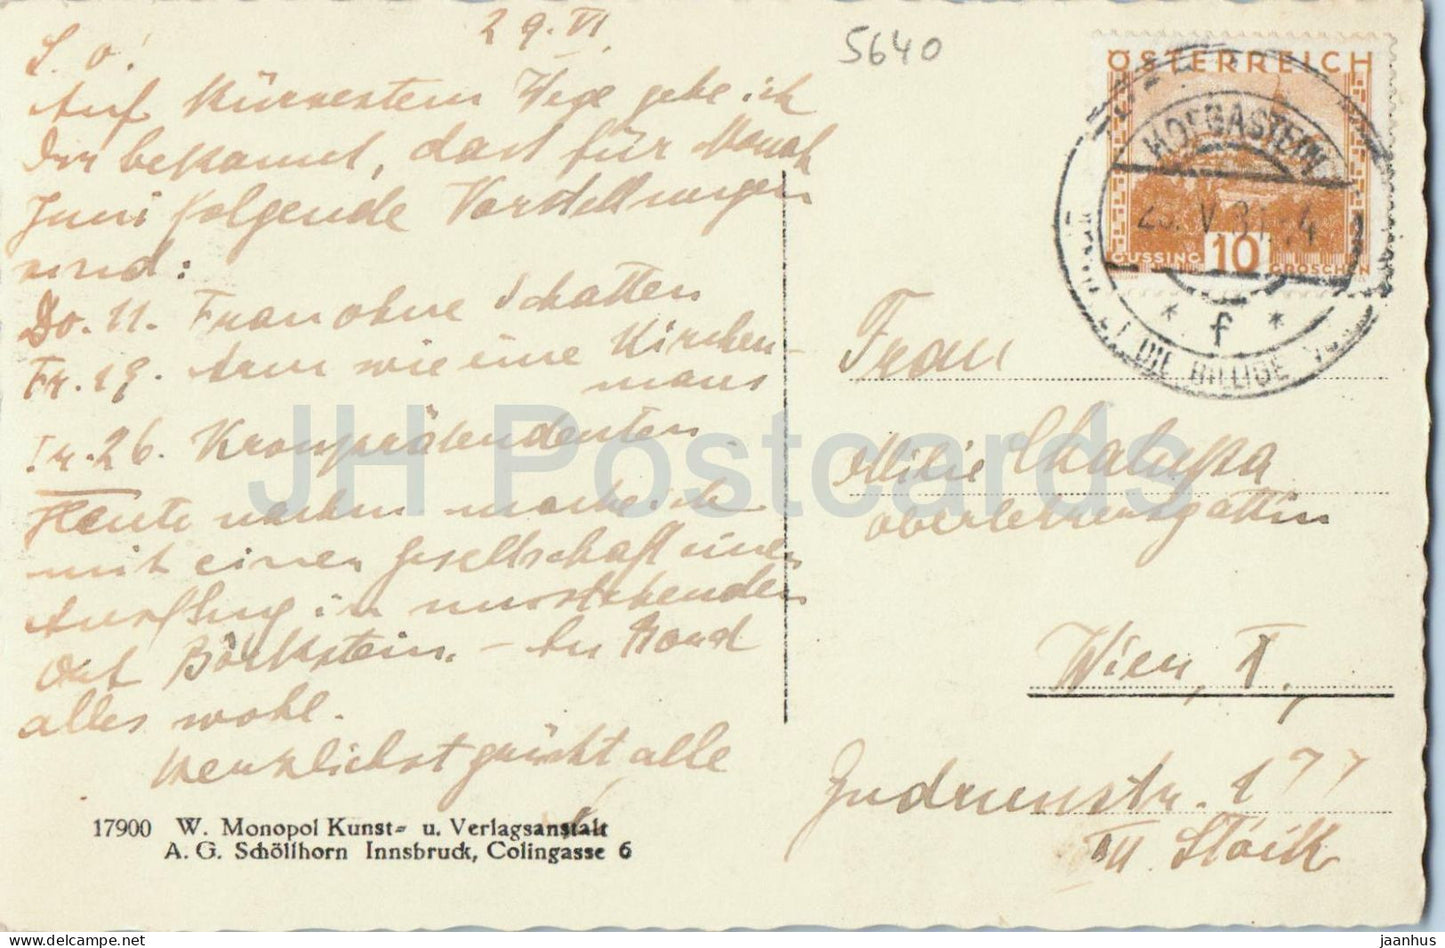 29. VI.
5640
L. O!
Auf kürzestem Wege gebe ich
Dir bekannt, dass für Monat
Juni folgende Vorstellungen
sind:
Do. 11. Frau ohne Schatten
Fr. 19. Arm wie eine Kirchen-
maus
Fr. 26. Kronprätendenten
Heute nachm. mache ich
mit einer Gesellschaft einen
Ausflug in umstehenden
Ort Böckstein. - An Bord
alles wohl.
Herzlichst grüsst alle
17900 W. Monopol Kunst- u. Verlagsanstalt
A. G. Schöllhorn Innsbruck, Colingasse 6
ÖSTERREICH
GÜSSING 10 GROSCHEN
HOFGASTEIN
V. 31
* f *
DIE BILLIGE
Frau
Milie Chalupka
Oberlehrersgattin
Wien, X,
Gudrunstr. 177
III. Stock
JH Postcards
delcampe.net
jaanhus